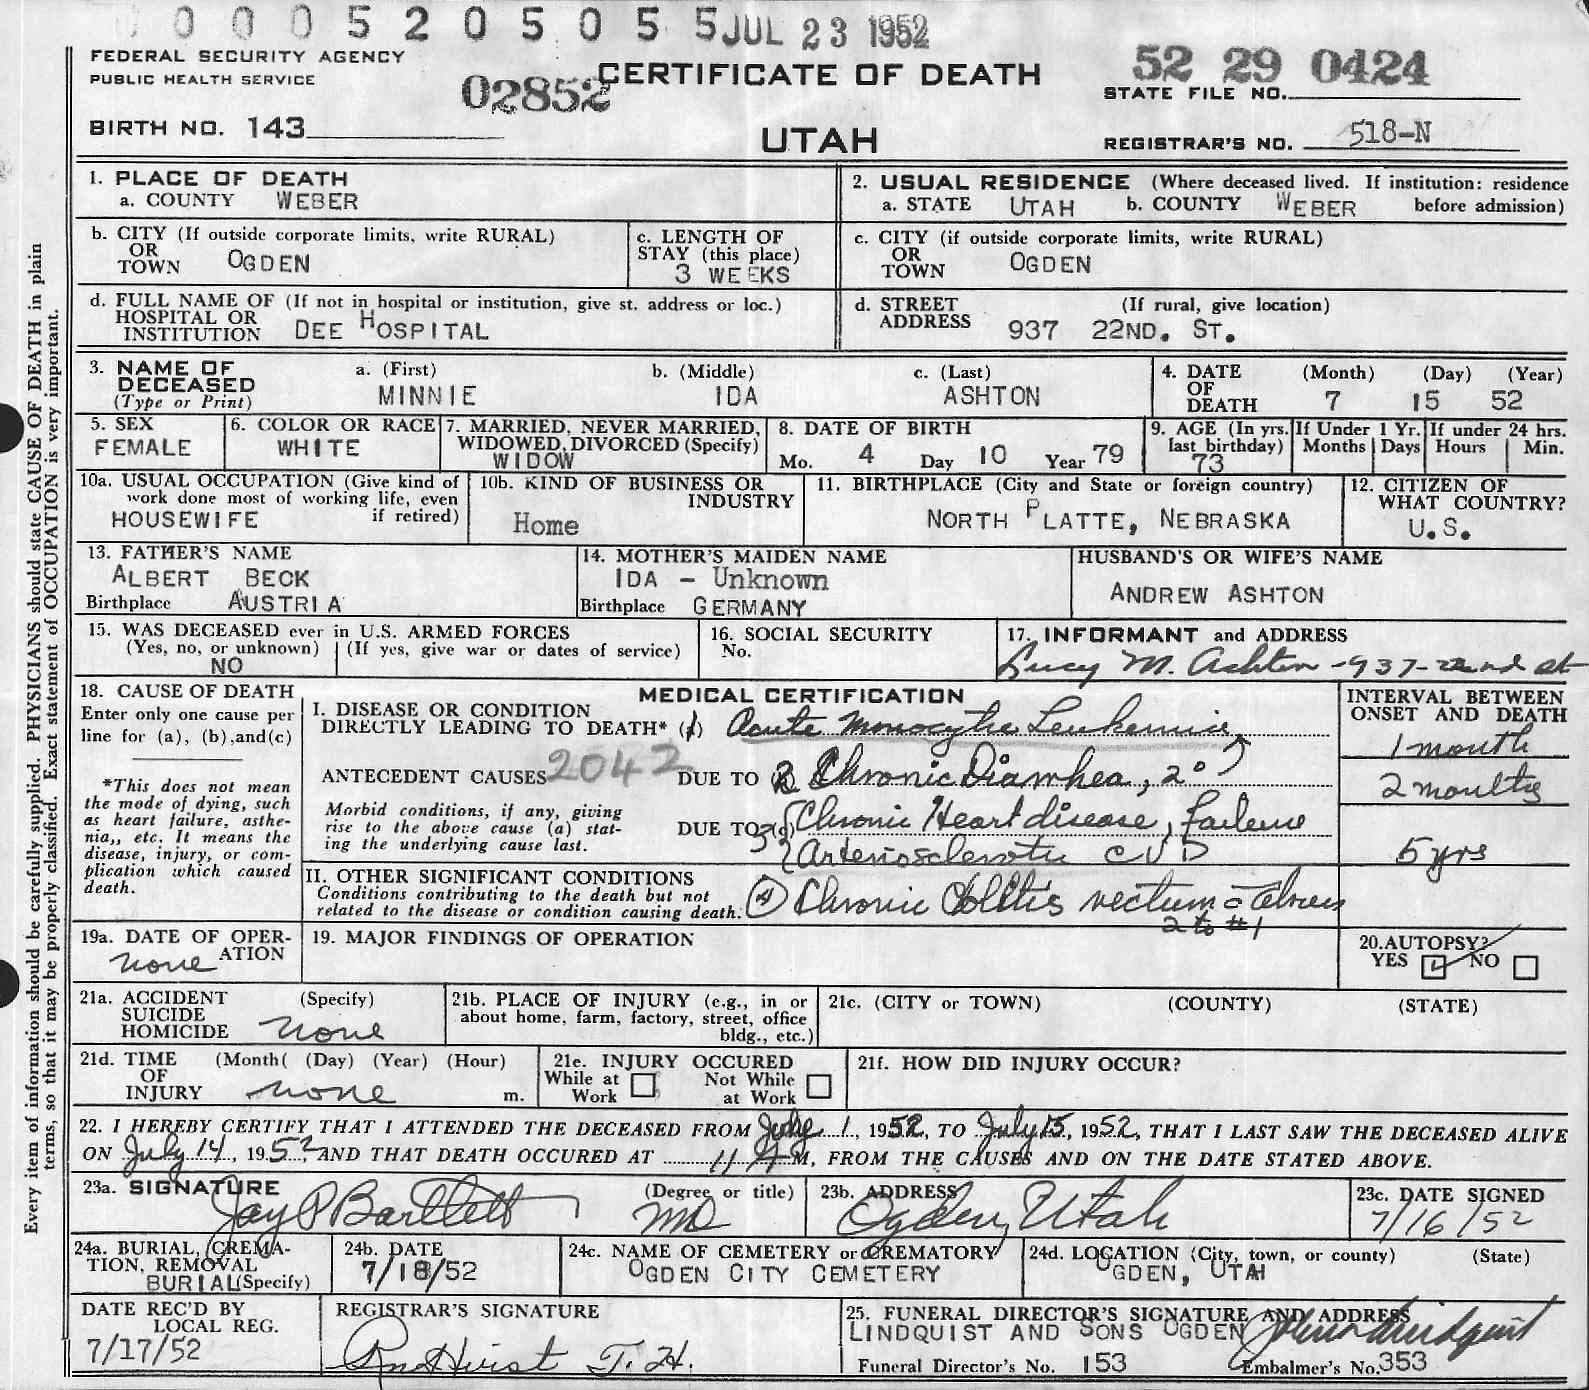 0 0 0 5 2 0 5 0 5 5 JUL 23 1952
FEDERAL SECURITY AGENCY
PUBLIC HEALTH SERVICE
02852
CERTIFICATE OF DEATH
52 29 0424
STATE FILE NO.
BIRTH NO. 143
UTAH
REGISTRAR'S NO. 518-N
Every item of information should be carefully supplied. PHYSICIANS should state CAUSE OF DEATH in plain
terms, so that it may be properly classified. Exact statement of OCCUPATION is very important.
1. PLACE OF DEATH
a. COUNTY WEBER
2. USUAL RESIDENCE (Where deceased lived. If institution: residence
a. STATE UTAH b. COUNTY WEBER before admission)
b. CITY (If outside corporate limits, write RURAL)
OR
TOWN OGDEN
c. LENGTH OF
STAY (this place)
3 WEEKS
c. CITY (if outside corporate limits, write RURAL)
OR
TOWN OGDEN
d. FULL NAME OF (If not in hospital or institution, give st. address or loc.)
HOSPITAL OR
INSTITUTION DEE HOSPITAL
d. STREET (If rural, give location)
ADDRESS 937 22ND. ST.
3. NAME OF
DECEASED
(Type or Print)
a. (First)
MINNIE
b. (Middle)
IDA
c. (Last)
ASHTON
4. DATE (Month) (Day) (Year)
OF
DEATH 7 15 52
5. SEX
FEMALE
6. COLOR OR RACE
WHITE
7. MARRIED, NEVER MARRIED,
WIDOWED, DIVORCED (Specify)
WIDOW
8. DATE OF BIRTH
Mo. 4 Day 10 Year 79
9. AGE (In yrs.
last birthday)
73
If Under 1 Yr.
Months Days
If under 24 hrs.
Hours Min.
10a. USUAL OCCUPATION (Give kind of
work done most of working life, even
HOUSEWIFE if retired)
10b. KIND OF BUSINESS OR
INDUSTRY
Home
11. BIRTHPLACE (City and State or foreign country)
NORTH PLATTE, NEBRASKA
12. CITIZEN OF
WHAT COUNTRY?
U.S.
13. FATHER'S NAME
ALBERT BECK
Birthplace AUSTRIA
14. MOTHER'S MAIDEN NAME
IDA - Unknown
Birthplace GERMANY
HUSBAND'S OR WIFE'S NAME
ANDREW ASHTON
15. WAS DECEASED ever in U.S. ARMED FORCES
(Yes, no, or unknown) (If yes, give war or dates of service)
NO
16. SOCIAL SECURITY
No.
17. INFORMANT and ADDRESS
Lucy M. Ashton - 937-22nd st
18. CAUSE OF DEATH
Enter only one cause per
line for (a), (b), and(c)
*This does not mean
the mode of dying, such
as heart failure, asthe-
nia,, etc. It means the
disease, injury, or com-
plication which caused
death.
MEDICAL CERTIFICATION
I. DISEASE OR CONDITION
DIRECTLY LEADING TO DEATH* (1) Acute Monocytic Leukemia
ANTECEDENT CAUSES 2042 DUE TO 2 Chronic Diarrhea, 2°
Morbid conditions, if any, giving
rise to the above cause (a) stat-
ing the underlying cause last.
DUE TO 3 Chronic Heart disease, failure
Arteriosclerotic CVD
II. OTHER SIGNIFICANT CONDITIONS
Conditions contributing to the death but not
related to the disease or condition causing death.
(4) Chronic Colitis rectum
2 to #1
INTERVAL BETWEEN
ONSET AND DEATH
1 month
2 months
5 yrs
19a. DATE OF OPER-
ATION
none
19. MAJOR FINDINGS OF OPERATION
20. AUTOPSY?
YES NO
21a. ACCIDENT (Specify)
SUICIDE
HOMICIDE none
21b. PLACE OF INJURY (e.g., in or
about home, farm, factory, street, office
bldg., etc.)
21c. (CITY or TOWN) (COUNTY) (STATE)
21d. TIME (Month( (Day) (Year) (Hour)
OF
INJURY none m.
21e. INJURY OCCURED
While at Work Not While at Work
21f. HOW DID INJURY OCCUR?
22. I HEREBY CERTIFY THAT I ATTENDED THE DECEASED FROM 1, 1952, TO July 15, 1952, THAT I LAST SAW THE DECEASED ALIVE
ON July 14, 1952, AND THAT DEATH OCCURED AT 11 AM, FROM THE CAUSES AND ON THE DATE STATED ABOVE.
23a. SIGNATURE (Degree or title)
Jay P Bartlett MD
23b. ADDRESS
Ogden, Utah
23c. DATE SIGNED
7/16/52
24a. BURIAL, CREMA-
TION, REMOVAL
BURIAL (Specify)
24b. DATE
7/18/52
24c. NAME OF CEMETERY or CREMATORY
OGDEN CITY CEMETERY
24d. LOCATION (City, town, or county) (State)
OGDEN, UTAH
DATE REC'D BY
LOCAL REG.
7/17/52
REGISTRAR'S SIGNATURE
25. FUNERAL DIRECTOR'S SIGNATURE AND ADDRESS
LINDQUIST AND SONS OGDEN
Funeral Director's No. 153 Embalmer's No. 353